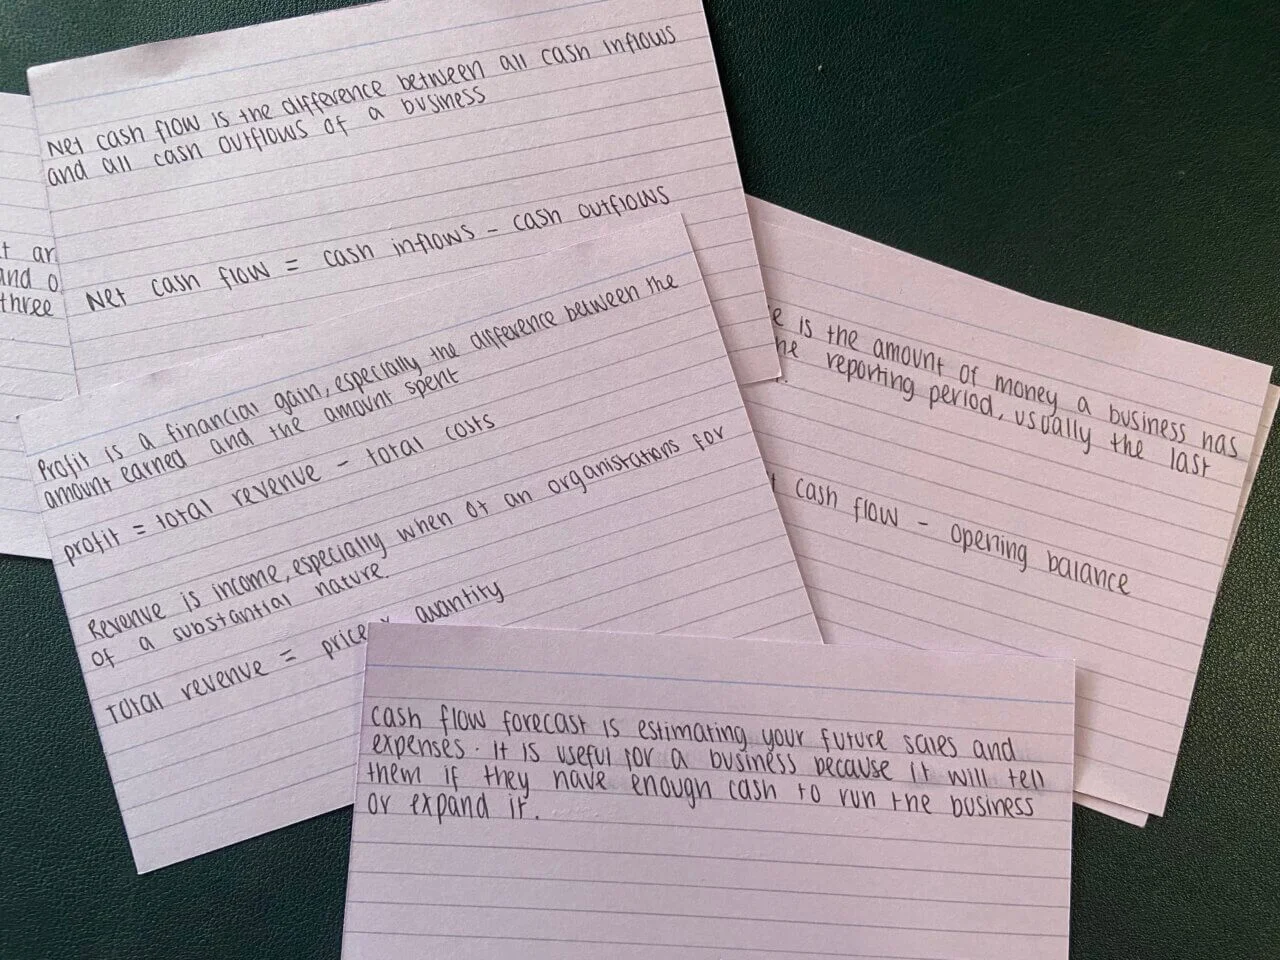 Net cash flow is the difference between all cash inflows
and all cash outflows of a business
Net cash flow = cash inflows - cash outflows
t ar
and o
three
Profit is a financial gain, especially the difference between the
amount earned and the amount spent
profit = total revenue - total costs
Revenue is income, especially when of an organistations for
of a substantial nature.
Total revenue = price x quantity
e is the amount of money a business has
he reporting period, usually the last
cash flow - opening balance
cash flow forecast is estimating your future sales and
expenses. it is useful for a business because it will tell
them if they have enough cash to run the business
or expand it.